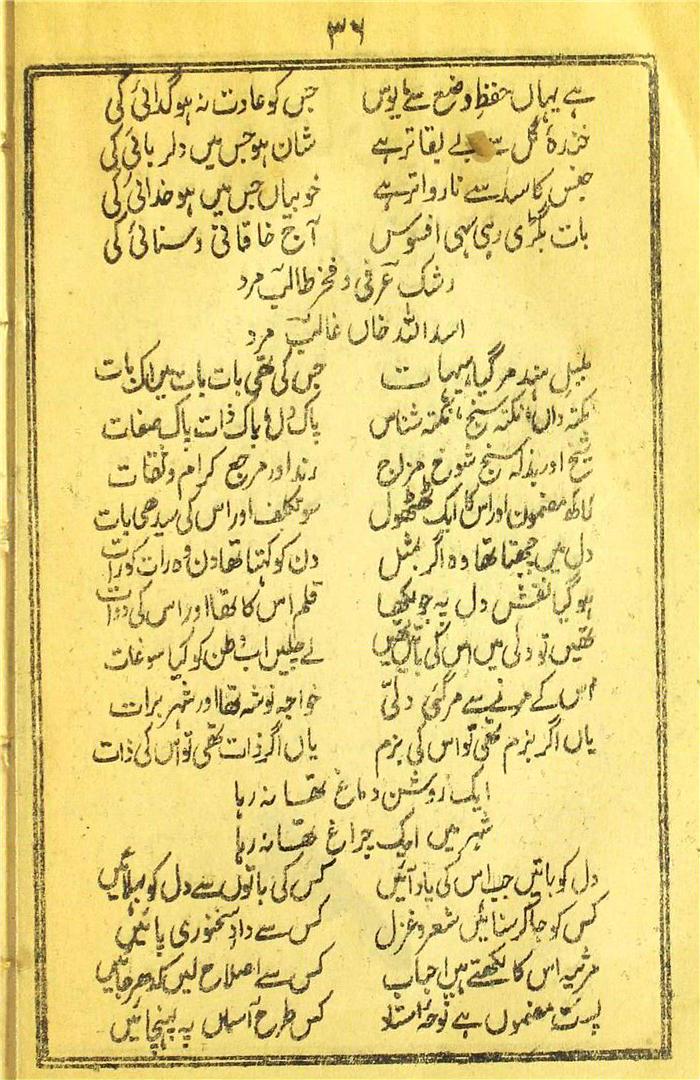 ۳۶
ہے یہاں حفظِ وضع سے مایوس جس کو عادت نہ ہو گدائی کی
خندۂ گل سے بے بقا تر ہے شان ہو جس میں دلربائی کی
جنس کاسد سے ناروا تر ہے خوبیاں جس میں ہو خدائی کی
بات بگڑی رہی سہی افسوس آج خاقانی و سنائی کی
رشک عرفی و فخر طالب مرد
اسد اللہ خاں غالب مرد
بلبلِ ہند مر گیا ہیہات جس کی تھی بات بات میں اک بات
نکتہ داں، نکتہ سنج، نکتہ شناس پاک دل، پاک ذات پاک صفات
شیخ اور بذلہ سنج شوخ مزاج رند اور مرجع کرام و ثقات
لاکھ مضمون اور اس کا ایک ٹھٹھول سو تکلف اور اس کی سیدھی بات
دل میں چبھتا تھا وہ اگر بمثل دن کو کہتا تھا دن وہ رات کو رات
ہو گیا نقش دل پہ جو لکھا قلم اس کا تھا اور اس کی دوات
تھیں تو دلی میں اس کی باتیں تھیں لے چلیں اب وطن کو کیا سوغات
اس کے مرنے سے مر گئی دلّی خواجہ نوشہ تھا اور شہر برات
یاں اگر بزم تھی تو اس کی بزم یاں اگر ذات تھی تو اس کی ذات
ایک روشن دماغ تھا نہ رہا
شہر میں ایک چراغ تھا نہ رہا
دل کو باتیں جب اس کی یاد آئیں کس کی باتوں سے دل کو بہلائیں
کس کو جا کر سنائیں شعر و غزل کس سے دادِ سخنوری پائیں
مرثیہ اس کا لکھتے ہیں احباب کس سے اصلاح لیں کدھر جائیں
پست مضموں ہے نوحۂ استاد کس طرح آسماں پہ پہنچائیں